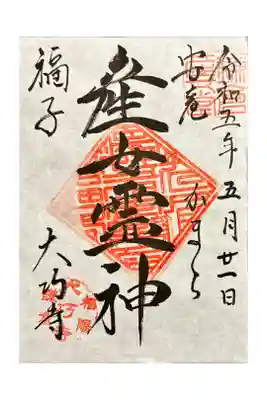 令和五年五月廿一日
安産
かまくら
産女霊神
福子
大巧寺